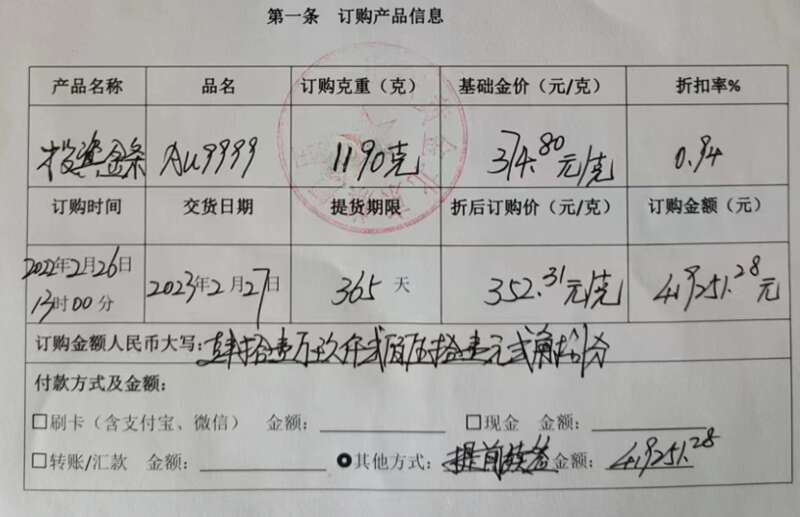 第一条 订购产品信息
产品名称 品名 订购克重（克） 基础金价（元/克） 折扣率%
投资金条 Au9999 1190克 374.80元/克 0.94
订购时间 交货日期 提货期限 折后订购价（元/克） 订购金额（元）
2022年2月26日 2023年2月27日 365天 352.31元/克 419251.28元
13时00分
订购金额人民币大写：肆拾壹万玖仟贰佰伍拾壹元贰角捌分
付款方式及金额：
□刷卡（含支付宝、微信） 金额： □现金 金额：
□转账/汇款 金额： 其他方式：提前 金额：419251.28